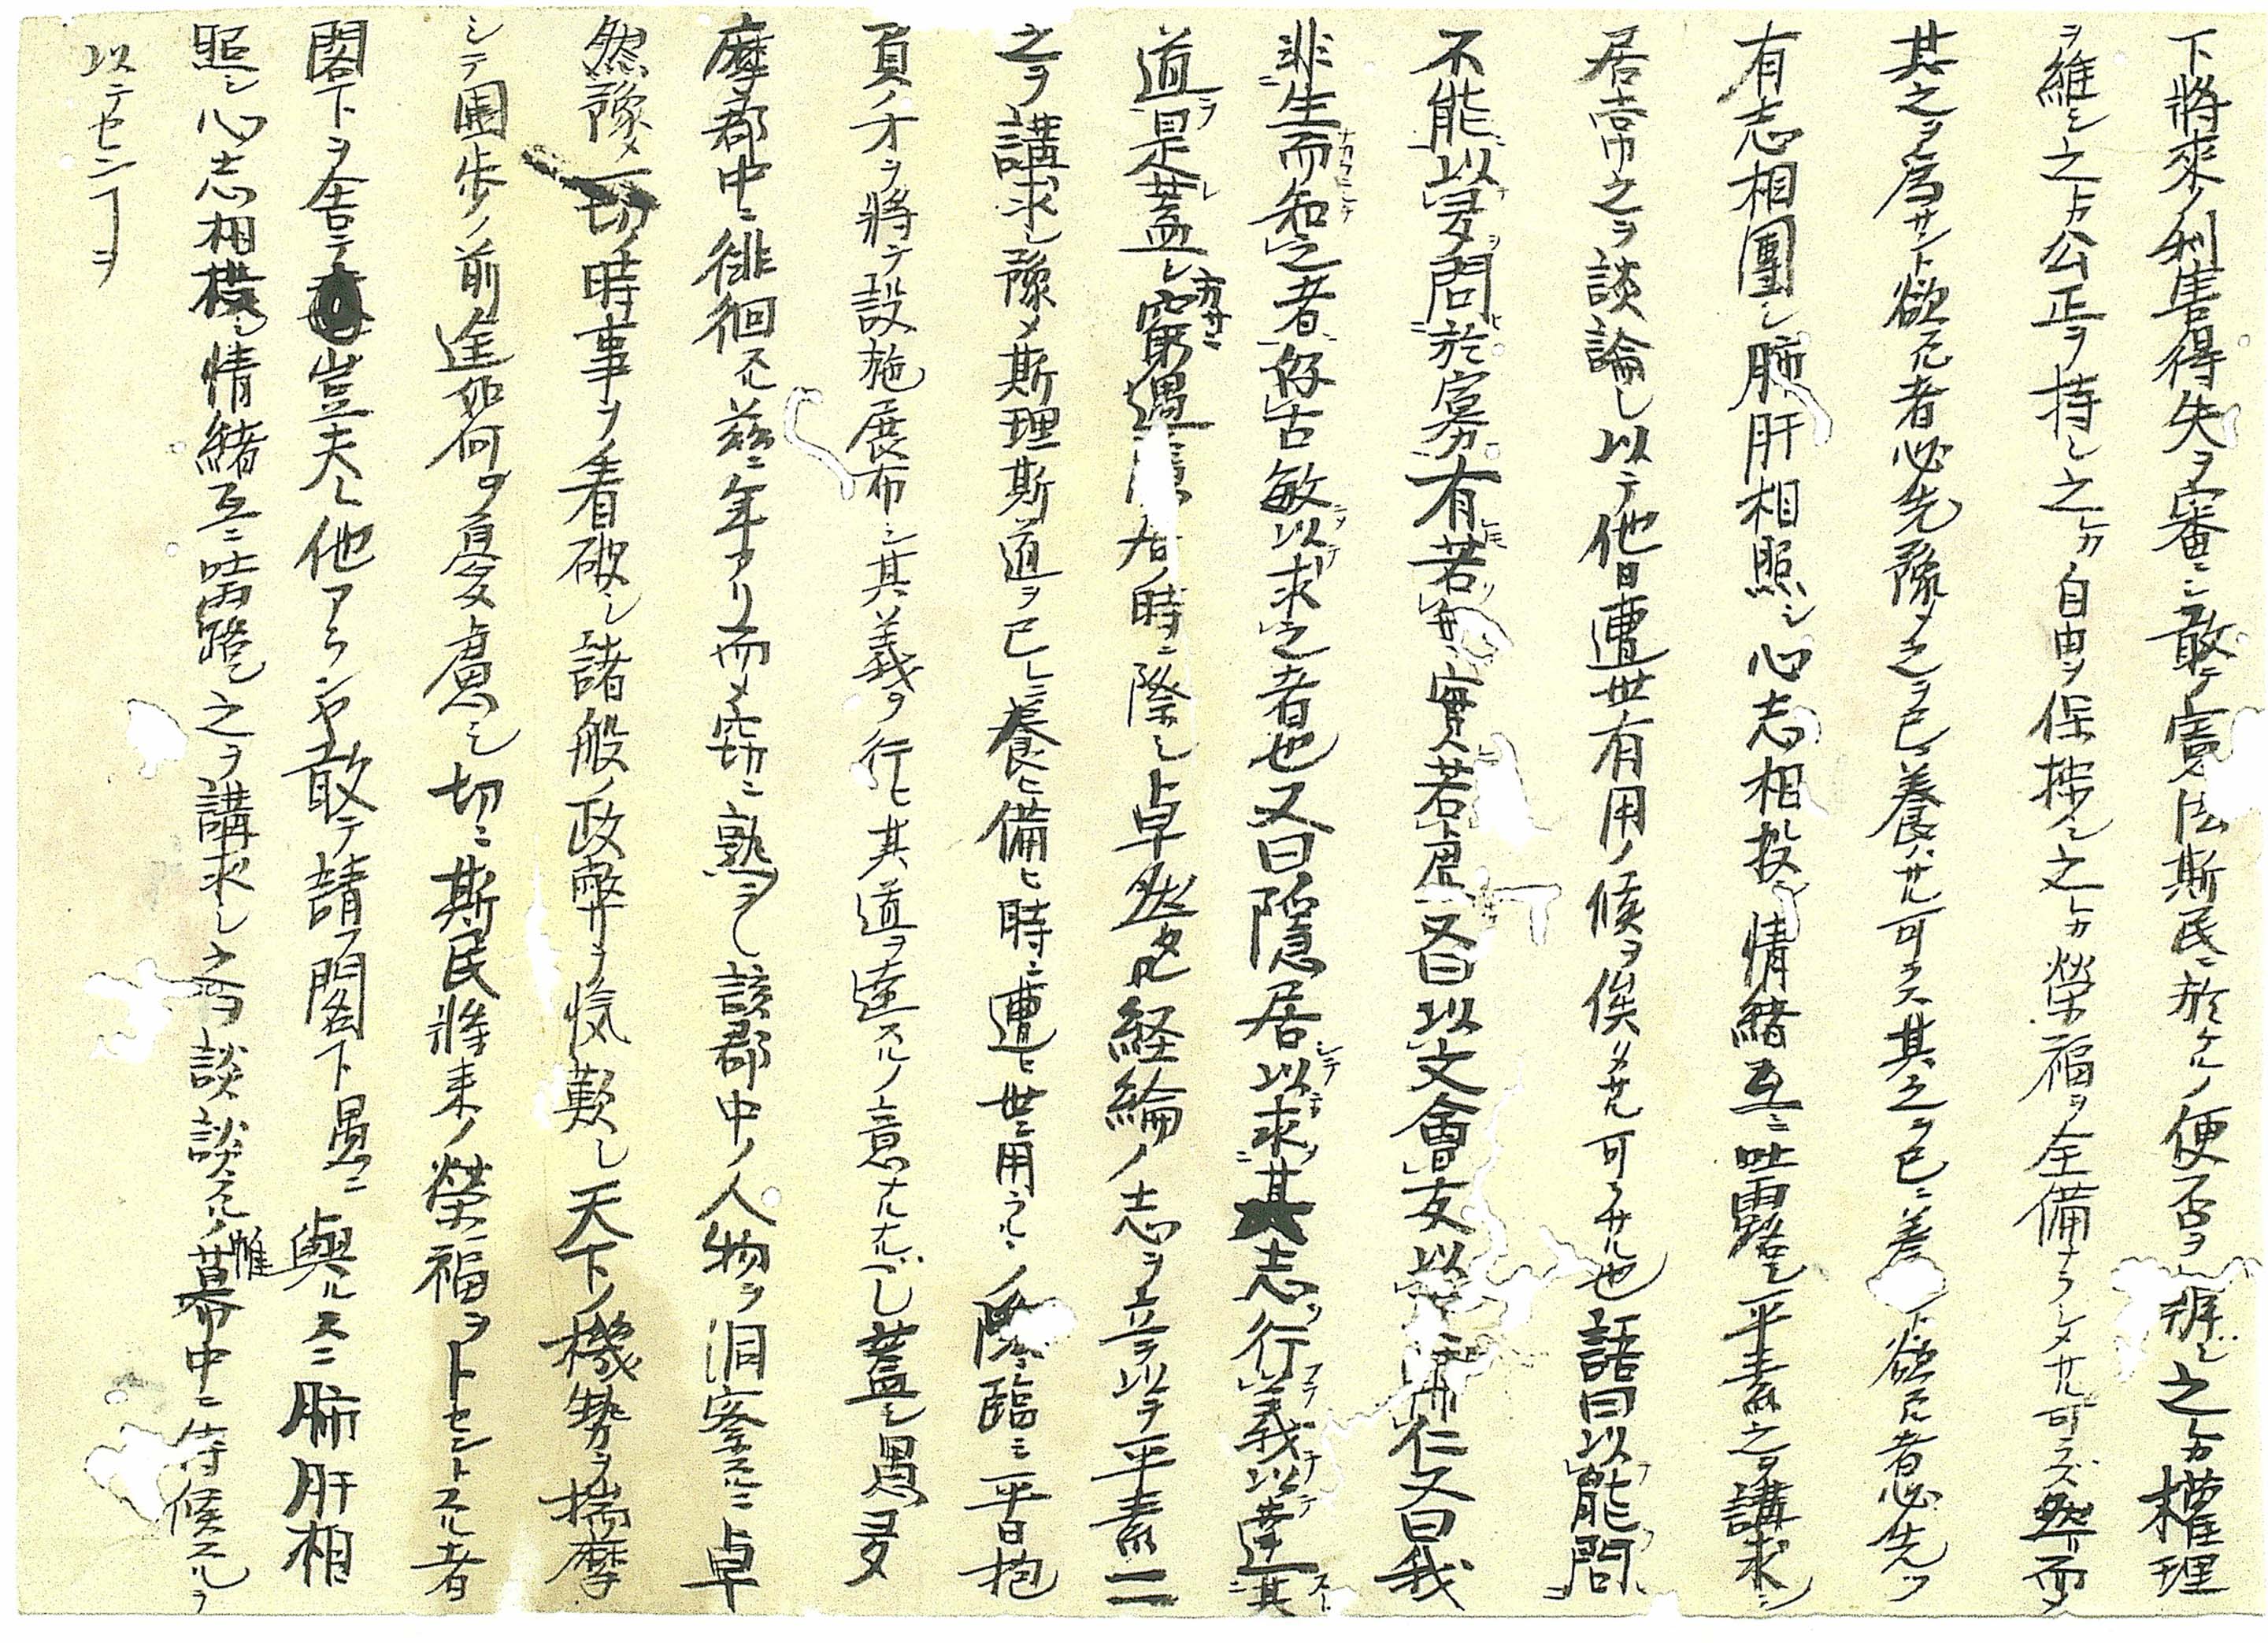 下將來ノ利害得失ヲ審ニシ敢テ寛法斯民ニ於ケルノ便否ヲ辨シ之レカ權理
ヲ維シ之レカ公正ヲ持シ之レカ自由ヲ保シ之レカ榮福ヲ全備ナラシメサル可ラズ然リ而メ
其之ヲ為サント欲スル者必先豫メ之ヲ己ニ養ハサル可ラス其之ヲ己ニ養ト欲スル者必先ツ
有志相團シ肺肝相照シ心志相投シ情緒互ニ吐露シ平素之ヲ講求シ
居常之ヲ談論シ以テ他日遭世有用ノ候ヲ俟タサル可ラサル也語曰以能問
不能以多問於寡有若无實若虚又曰以文會友以輔仁又曰我
非生而知之者好古敏以求之者也又曰隱居以求其志行義以達其
道是蓋シ方サニ窮遇隱居ノ時ニ際シ卓然タル経綸ノ志ヲ立テ以テ平素ニ
之ヲ講求シ豫メ斯理斯道ヲ己レニ養ヒ備ヒ時ニ遭ヒ世ニ用ラルヽノ際ニ臨ミ平日抱
負ノ才ヲ將テ設施展布シ其義ヲ行ヒ其道ヲ達スルノ意ナルナルベし蓋シ愚多
摩郡中ニ徘徊スル茲ニ年アリ而メ窃ニ熟ラ〱該郡中ノ人物ヲ洞察スルニ卓
然豫メ一切ノ時事ヲ看破シ諸般ノ政弊ヲ慨歎し天下ノ機勢ヲ揣摩
シテ國歩ノ前途如何ヲ憂慮シ切ニ斯民將来ノ榮福ヲトセントスル者
閣下ヲ舎テ豈夫レ他アランヤ敢テ請フ閣下愚ニ與ルスニ肺肝相
照シ心志相投シ情緒互ニ吐露シ之ヲ講求シ之ヲ談スルノ帷幕中ニ侍候スルヲ
以テセンヿヲ